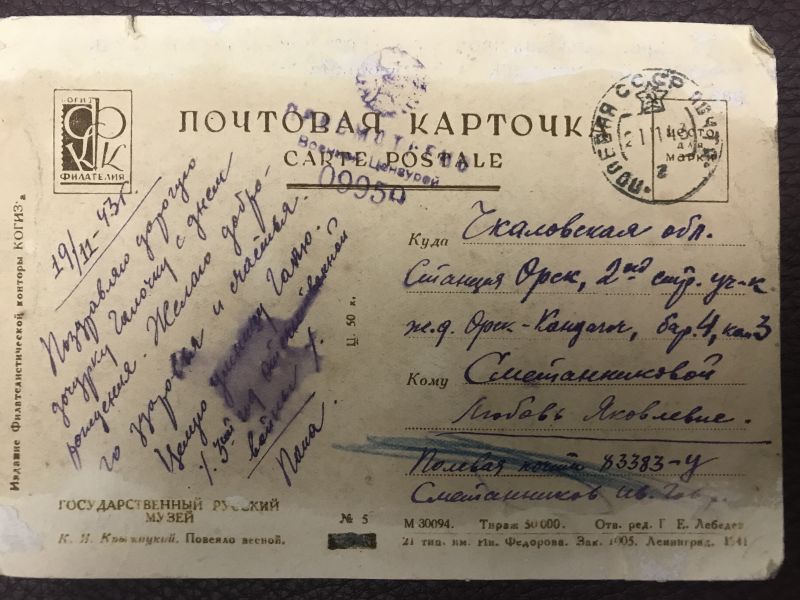 КОГИЗ
ФКК
ФИЛАТЕЛИЯ
ПОЧТОВАЯ КАРТОЧКА
CARTE POSTALE
Военной Цензурой
09950
ПОЛЕВАЯ СССР ПОЧТА
МЕСТО
ДЛЯ
МАРКИ
19/II-43г.
Поздравляю дорогую
дочурку Галочку с днем
рождения. Желаю добро-
го здоровья и счастья.
Целую Галю.
войны
Папа.
Издание Филателистической конторы КОГИЗ'а
Ц. 50 к.
Куда Чкаловская обл.
Станция Орск, 2ой стр. уч-к
ж.д. Орск-Кандагач, бар. 4, ком 3
Кому Сметанниковой
Любовь Яковлевне.
Полевая почта 83383-У
Сметанников Ив.
ГОСУДАРСТВЕННЫЙ РУССКИЙ
МУЗЕЙ
К. Я. Крыжицкий. Повеяло весной.
№ 5
М 30094. Тираж 50 000. Отв. ред. Г. Е. Лебедев
21 тип. им. Ив. Федорова. Зак. 1005. Ленинград, 1941